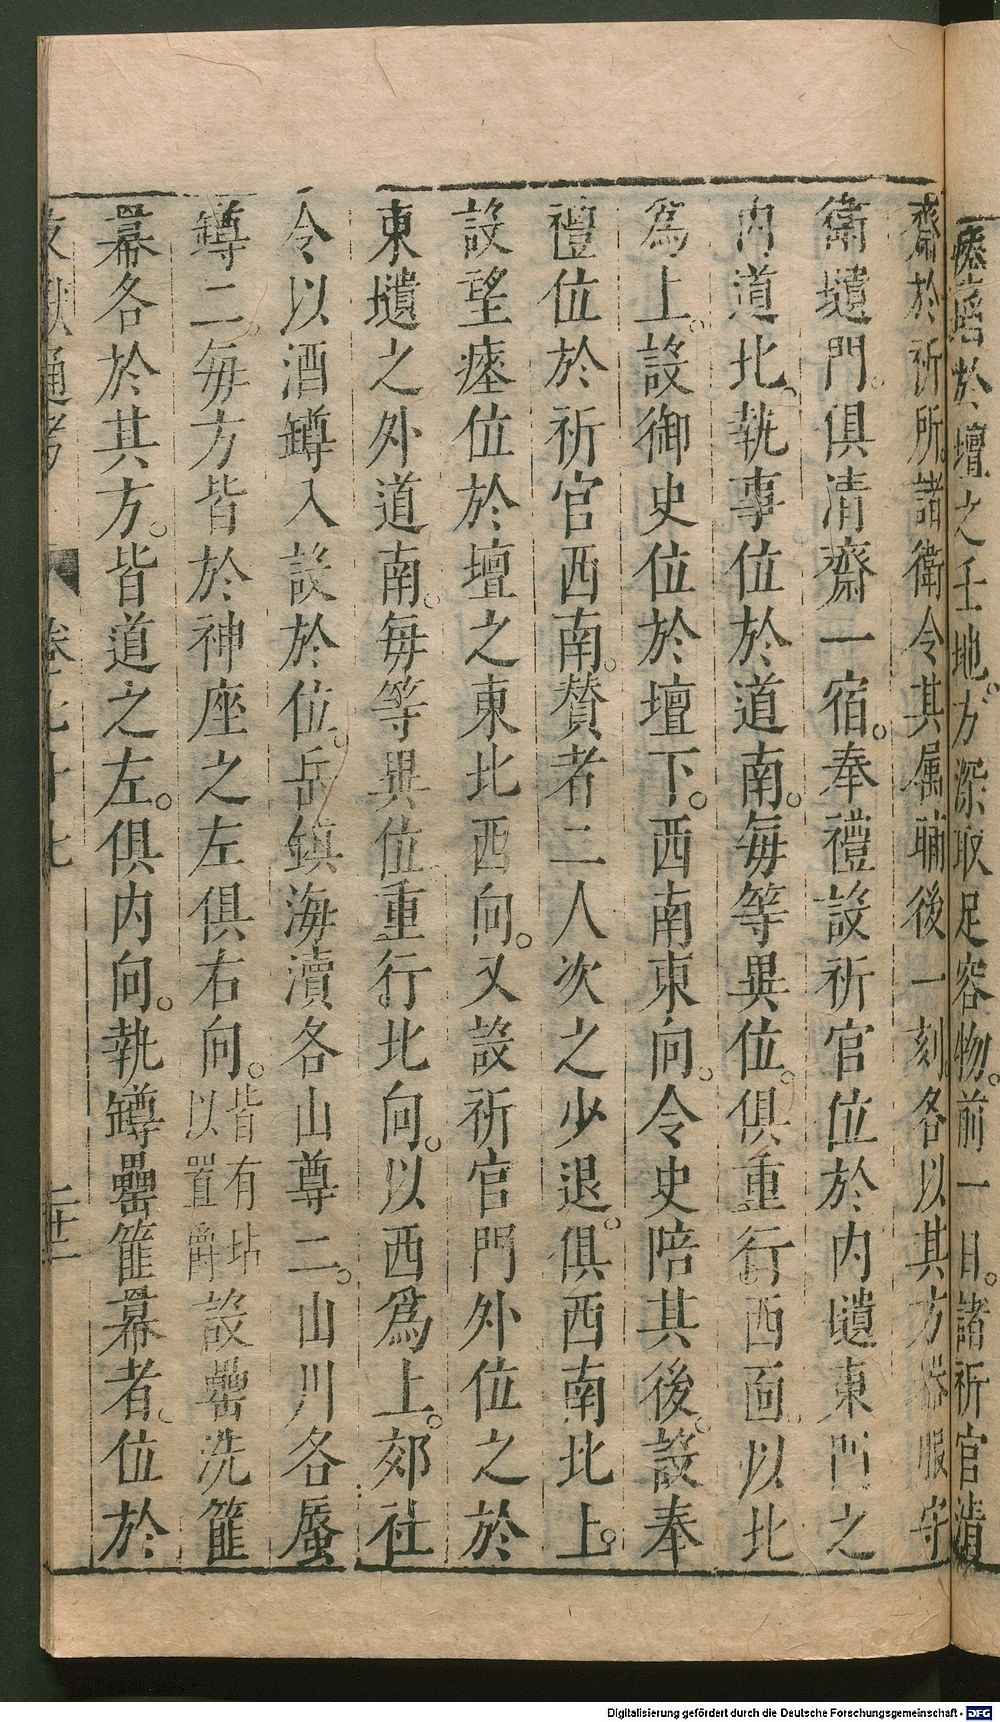 瘞埳於壇之壬地。方深取足容物。前一日。諸祈官清
齋於祈所。諸衛令其属晡後一刻各以其方器服守
衛壝門。俱清齋一宿。奉禮設祈官位於内壝東門之
内道北。執事位於道南。每等異位。俱重行西面以北
為上。設御史位於壇下。西南東向。令史陪其後。設奉
禮位於祈官西南。賛者二人次之少退。俱西南北上。
設望瘞位於壇之東北西向。又設祈官門外位之於
東壝之外道南。每等異位重行北向。以西爲上。郊社
令以酒罇入設於位。岳鎮海瀆各山尊二。山川各蜃
罇二。每方皆於神座之左俱右向。皆有坫以置爵設罍洗篚
冪各於其方。皆道之左。俱内向。執罇罍篚冪者。位於
文獻通考 卷七十七 二十二
Digitalisierung gefördert durch die Deutsche Forschungsgemeinschaft - DFG